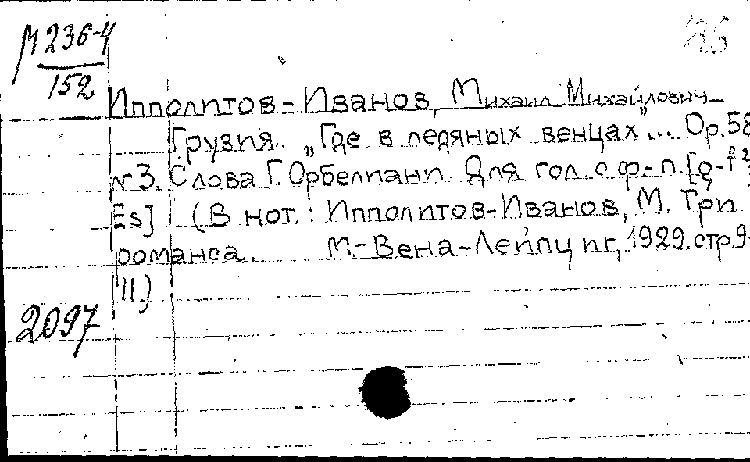 М 236-4
152
Ипполитов-Иванов, Михаил Михайлович
Грузия. „Где в ледяных венцах"... Ор.58
№3. Слова Г. Орбелиани. Для гол. с ф-п.
Es] (В нот.: Ипполитов-Иванов, М. Три
романса. М.-Вена-Лейпциг, 1929. стр.9-
11.)
2097